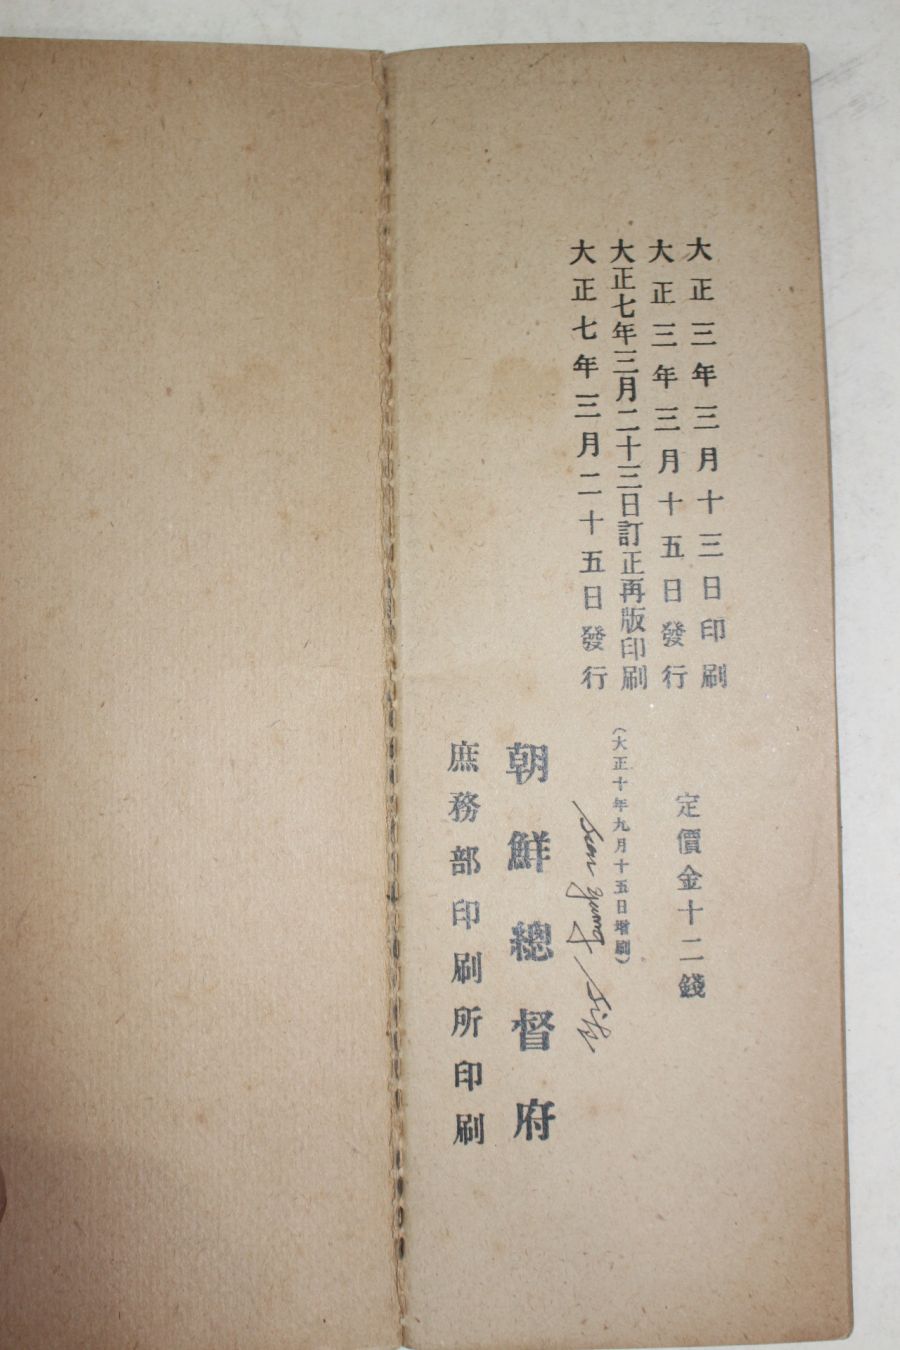 大正三年三月十三日印刷
大正三年三月十五日發行
大正七年三月二十三日訂正再版印刷
大正七年三月二十五日發行
定價金十二錢
(大正十年九月十五日增刷)
朝鮮總督府
庶務部印刷所印刷